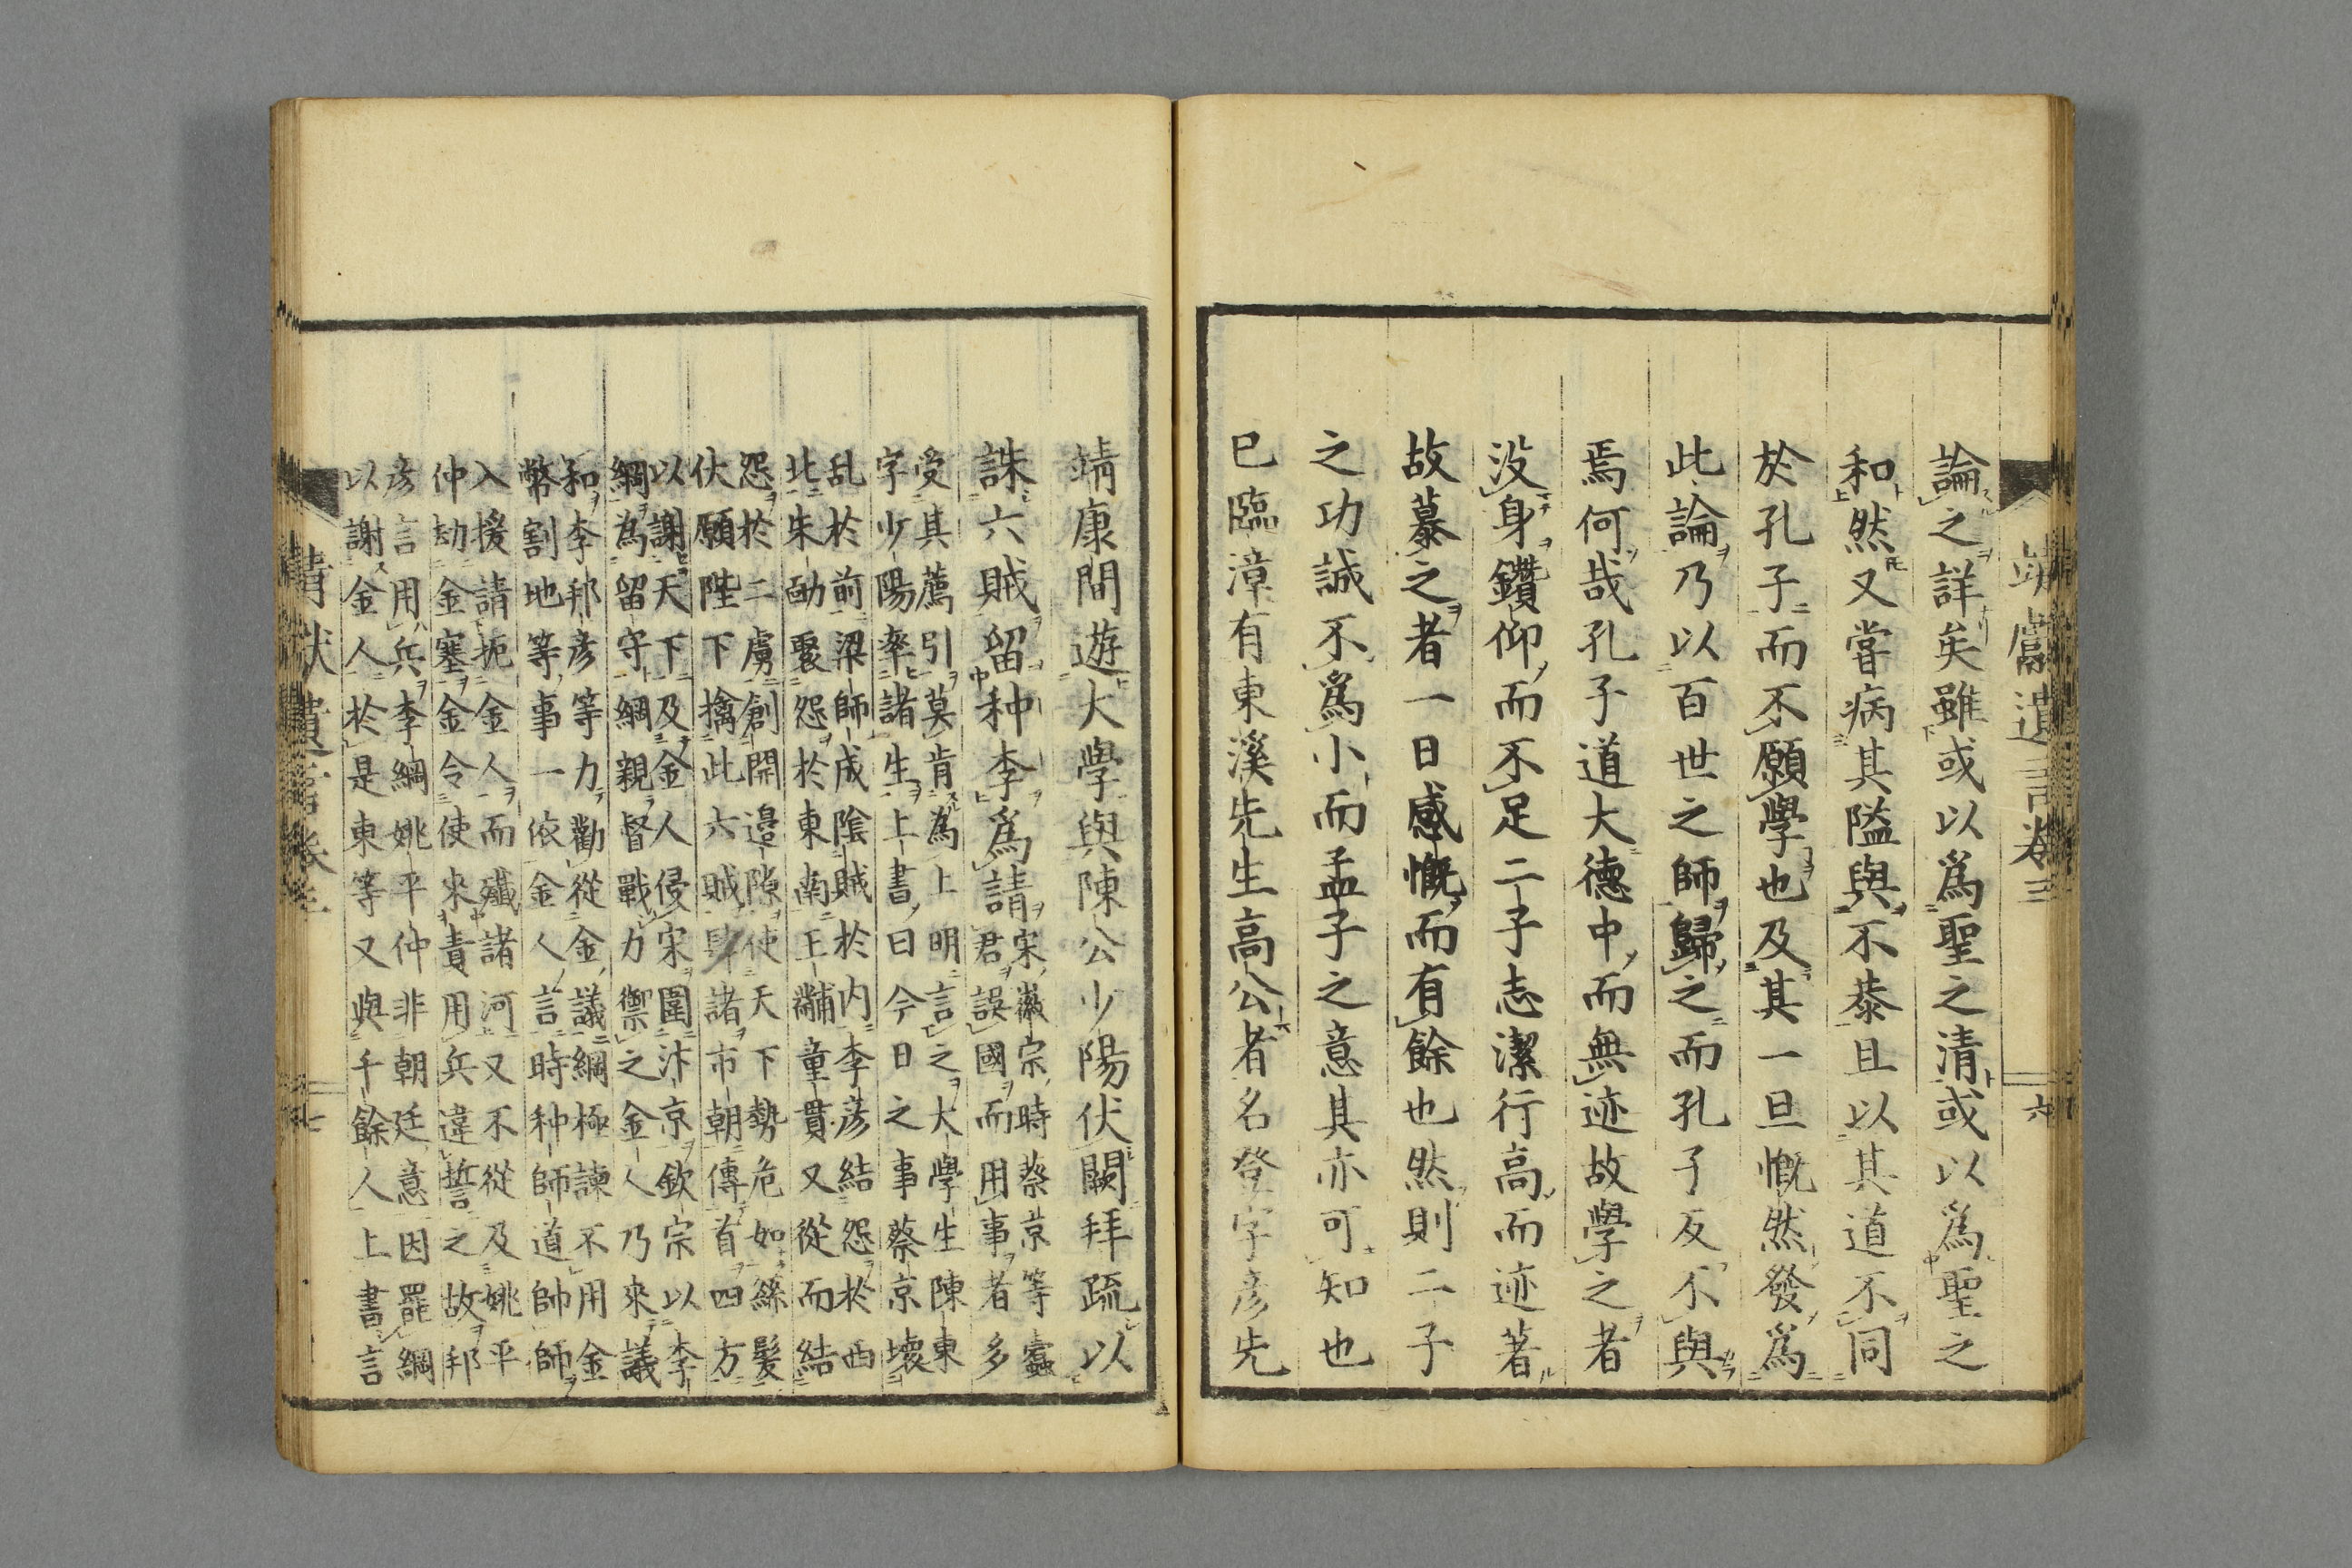 靖獻遺言卷三 六
論之詳矣雖或以爲聖之清或以爲聖之
和然又嘗病其隘與不恭且以其道不同
於孔子而不願學也及其一旦慨然發爲
此論乃以百世之師歸之而孔子反不與
焉何哉孔子道大德中而無迹故學之者
没身鑽仰而不足二子志潔行高而迹著
故慕之者一日感慨而有餘也然則二子
之功誠不爲小而孟子之意其亦可知也
已臨漳有東溪先生高公者名登字彦先
靖康間遊大學與陳公少陽伏闕拜疏以
誅六賊留种李爲請
宋徽宗時蔡京等蠧
君誤國而用事者多
受其薦引莫肯為上明言之大學生陳東
字少陽率諸生上書曰今日之事蔡京壞
乱於前梁師成陰賊於内李彦結怨於西
北朱勔聚怨於東南王黼童貫又從而結
怨於二虜創開邉隙使天下勢危如絲髪
伏願陛下擒此六賊肆諸市朝傳首四方
以謝天下及金人侵宋圍汴京欽宗以李
綱為留守綱親督戰力禦之金人乃來議
和李邦彦等力勸從金議綱極諫不用金
幣割地等事一依金人言時种師道帥師
入援請扼金人而殱諸河又不從及姚平
仲劫金塞金令使來責用兵違誓之故邦
彦言用兵李綱姚平仲非朝廷意因罷綱
以謝金人於是東等又與千餘人上書言
靖獻遺言卷三 七